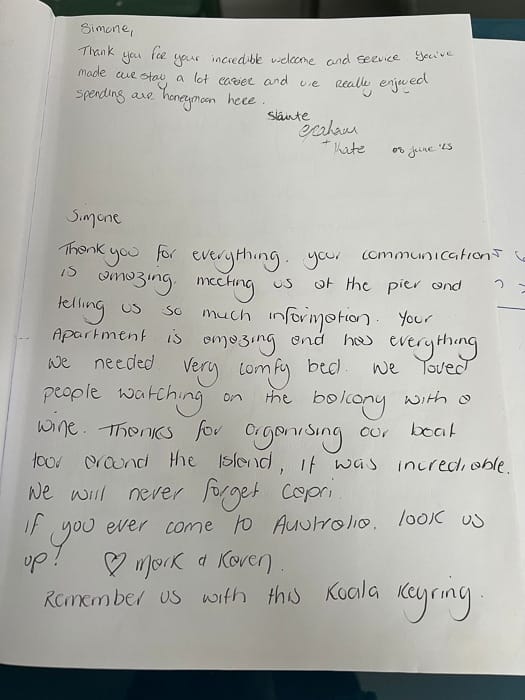 Simone,
Thank you for your incredible welcome and service You've
made our stay a lot easier and we really enjoyed
spending are honeymoon here.
Sláinte
Graham
+ Kate 08 June '25
Simone
Thank you for everything. your communication
is amazing. meeting us at the pier and
telling us so much information. Your
Apartment is amazing and has everything
we needed. Very comfy bed. We loved
people watching on the balcony with a
wine. Thanks for organising our boat
tour around the Island, it was incredible.
We will never forget Capri.
if you ever come to Australia, look us
up! ♡ Mark & Karen.
Remember us with this Koala Keyring.